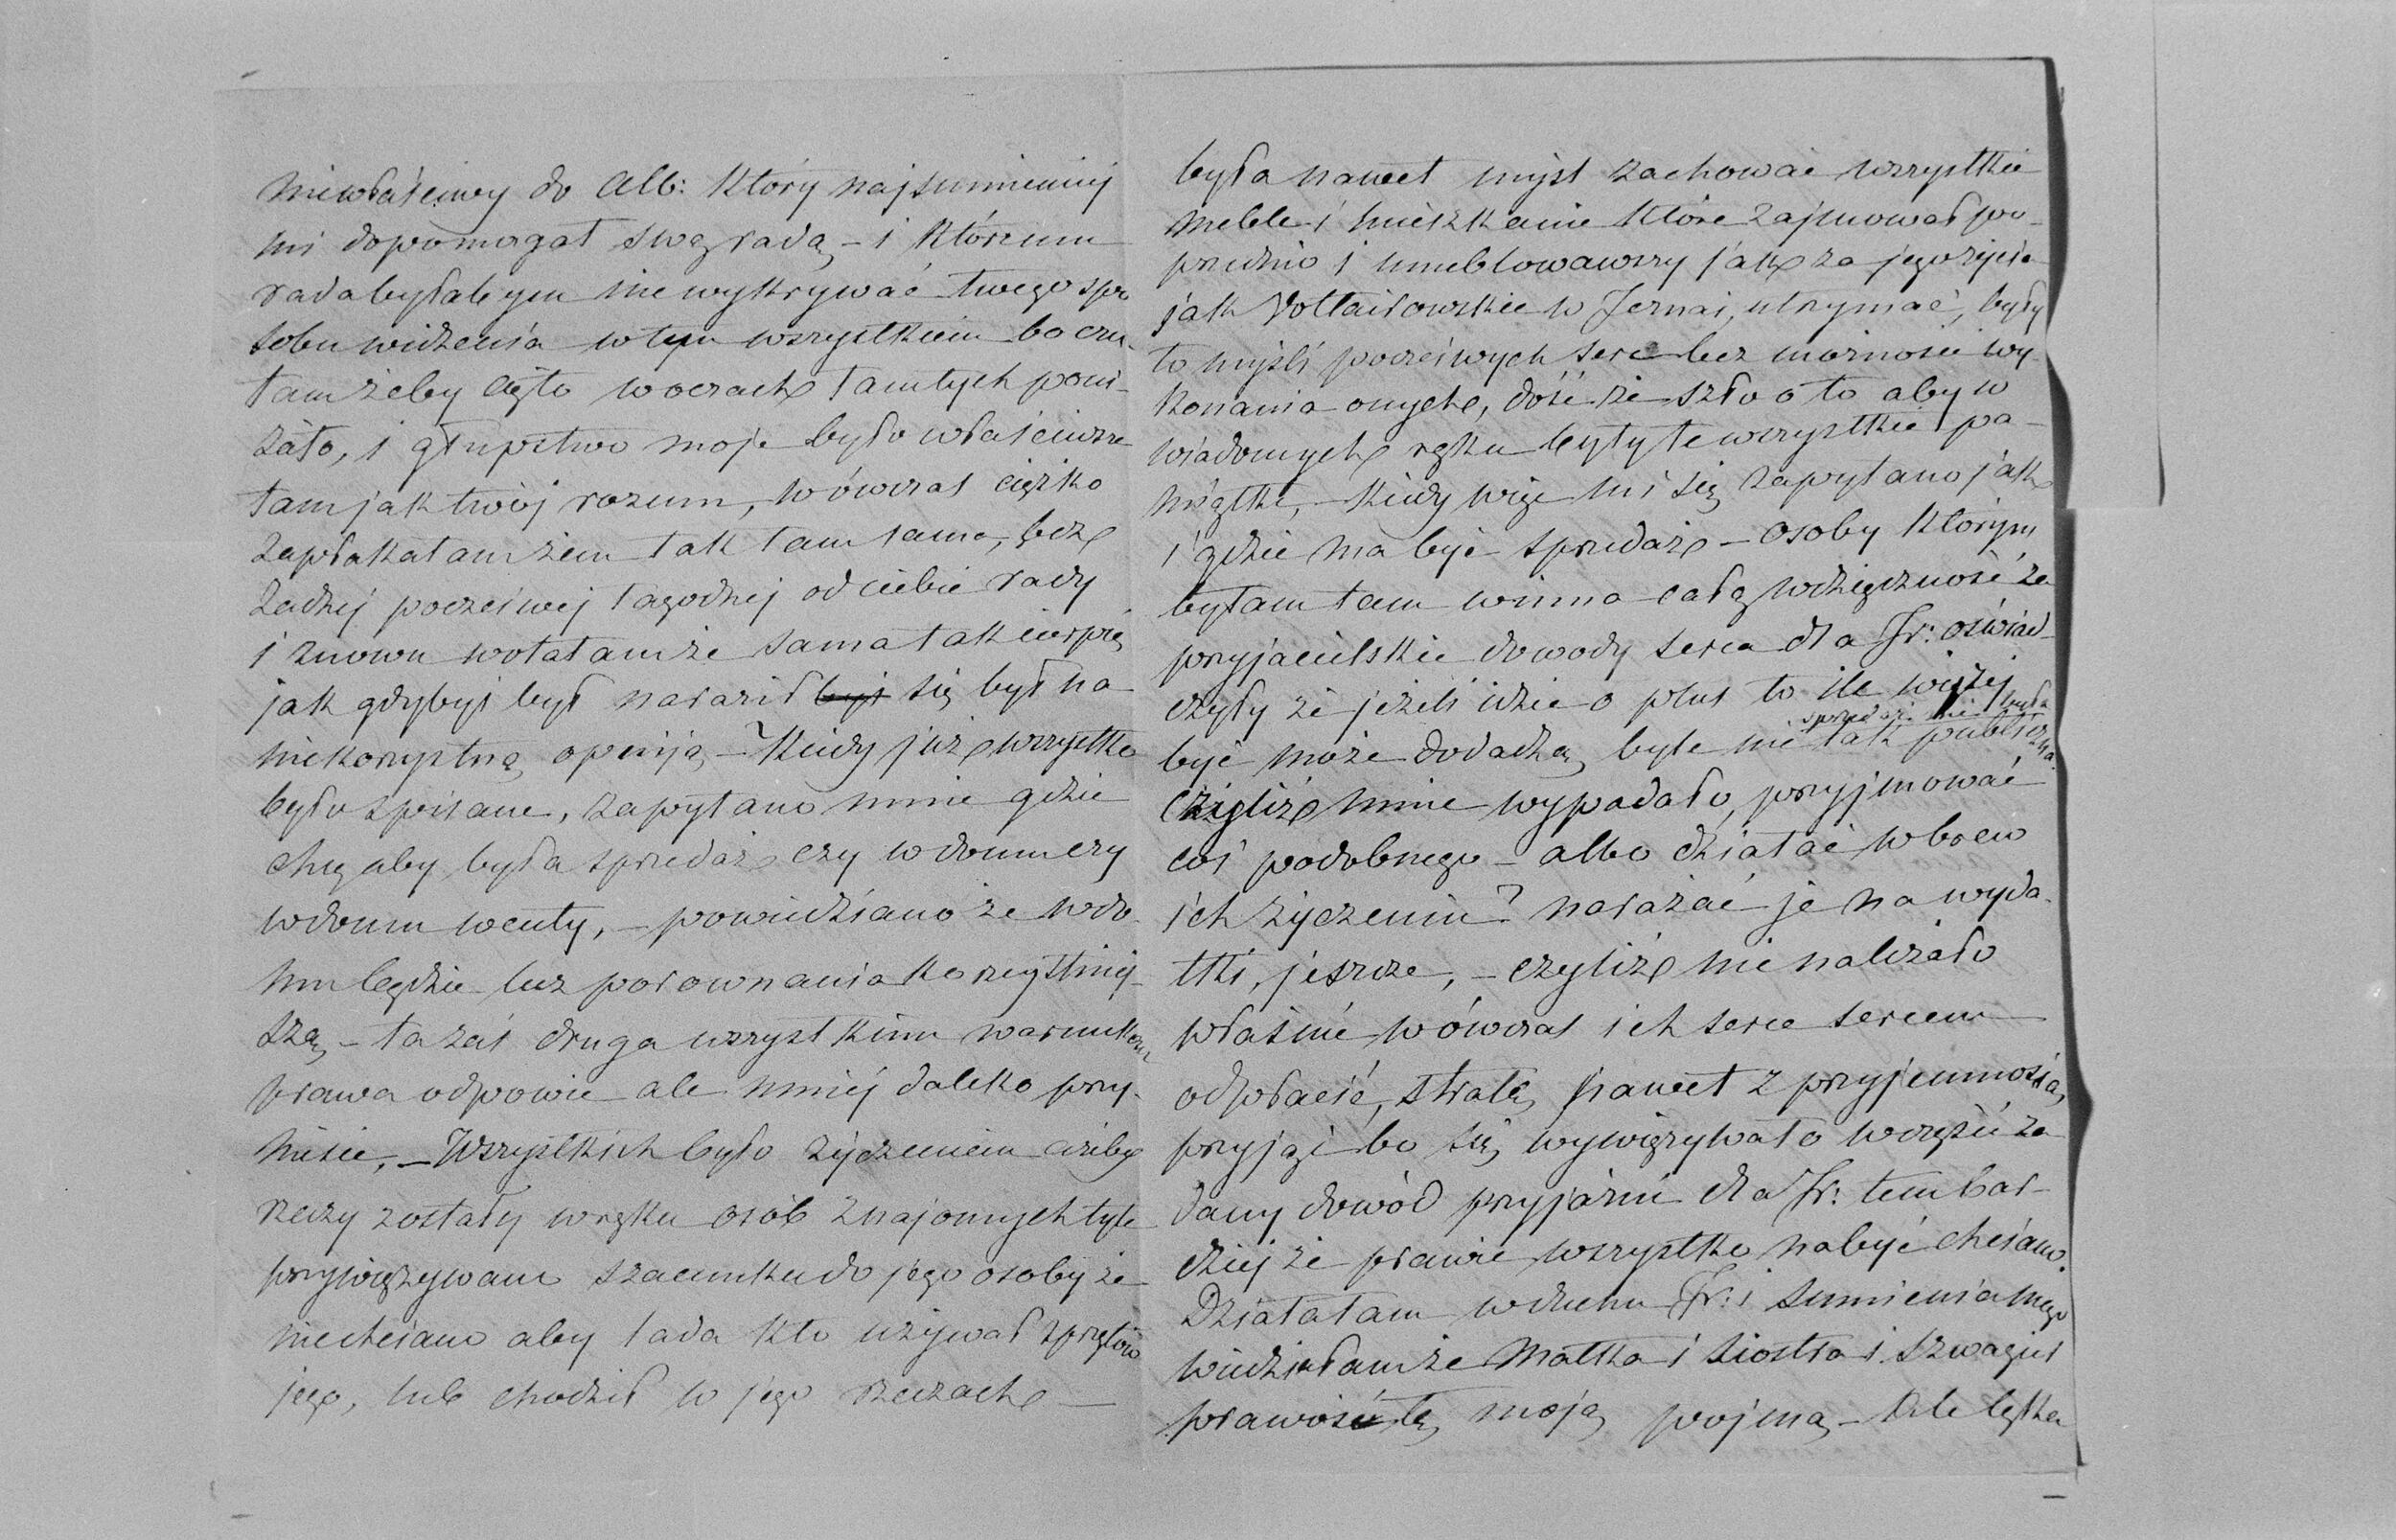 niewłaściwy do Alb: który najsumienniej
mi dopomagał swą radą – i któremu
radabyłabym nie wykrywać twego spo
sobu widzenia w tym wszystkiem bo czu-
łam żeby Cię to w oczach tamtych poni-
żało, i głupstwo moje było właściwsze
tam jak twój rozum, wówczas ciężko
zapłakałam żem tak tam sama, bez
żadnej poczciwej łagodnej od ciebie rady
i znowu wołałam że sama tak cierpię
jak gdybyś był naraził byś się był na
niekorzystną opinją – Kiedy już wszystko
było spisane, zapytano mnie gdzie
chcę aby była sprzedaż czy w domu czy
w domu wenty, – powiedziano że w do-
mu będzie bez porownania korzystniej-
szą – ta zaś druga wszystkim warunkom
prawa odpowie ale mniej daleko przy-
niesie, – Wszystkich było życzeniem ażeby
rzeczy zostały w ręku osób znajomych tyle
przywiązywano szacunku do jego osoby że
niechciano aby lada kto używał sprzętów
jego, lub chodził w jego rzeczach –
była nawet myśl zachować wszystkie
meble i mieszkanie które zajmował po-
przednio i umeblowawszy jak za jego życia
jak Voltairowskie w Fernai, utrzymać, były
to myśli poczciwych serc bez możności wy-
konania onych, dość że szło o to aby w
wiadomych ręku były te wszystkie pa-
miątki, – Kiedy więc mi się zapytano jak
i gdzie ma być sprzedaż – osoby którym
byłam tam winna całą wdzięczność za
przyjacielskie dowody serca dla Fr: oświad-
czyły że jeżeli idzie o plus to ile więcej
sprzedaż nie była
być może dodadzą byle nie tak publiczna.
Czyliż mnie wypadało, przyjmować
coś podobnego – albo działać wbrew
ich życzeniu? narażać je na wyda-
tki, jeszcze, – czyliż nie należało
właśnie wówczas ich serce sercem
odpłacić, stratę nawet z przyjemnością
przyjąć bo się wywiązywało w części za
dany dowód przyjaźni dla Fr: tem bar-
dziej że prawie wszystko nabyć chciano.
Działałam w duchu Fr: i sumienia mego
wiedziałam że Matka i siostra i szwagier
prawość tę moją pojmą – Ale lęka